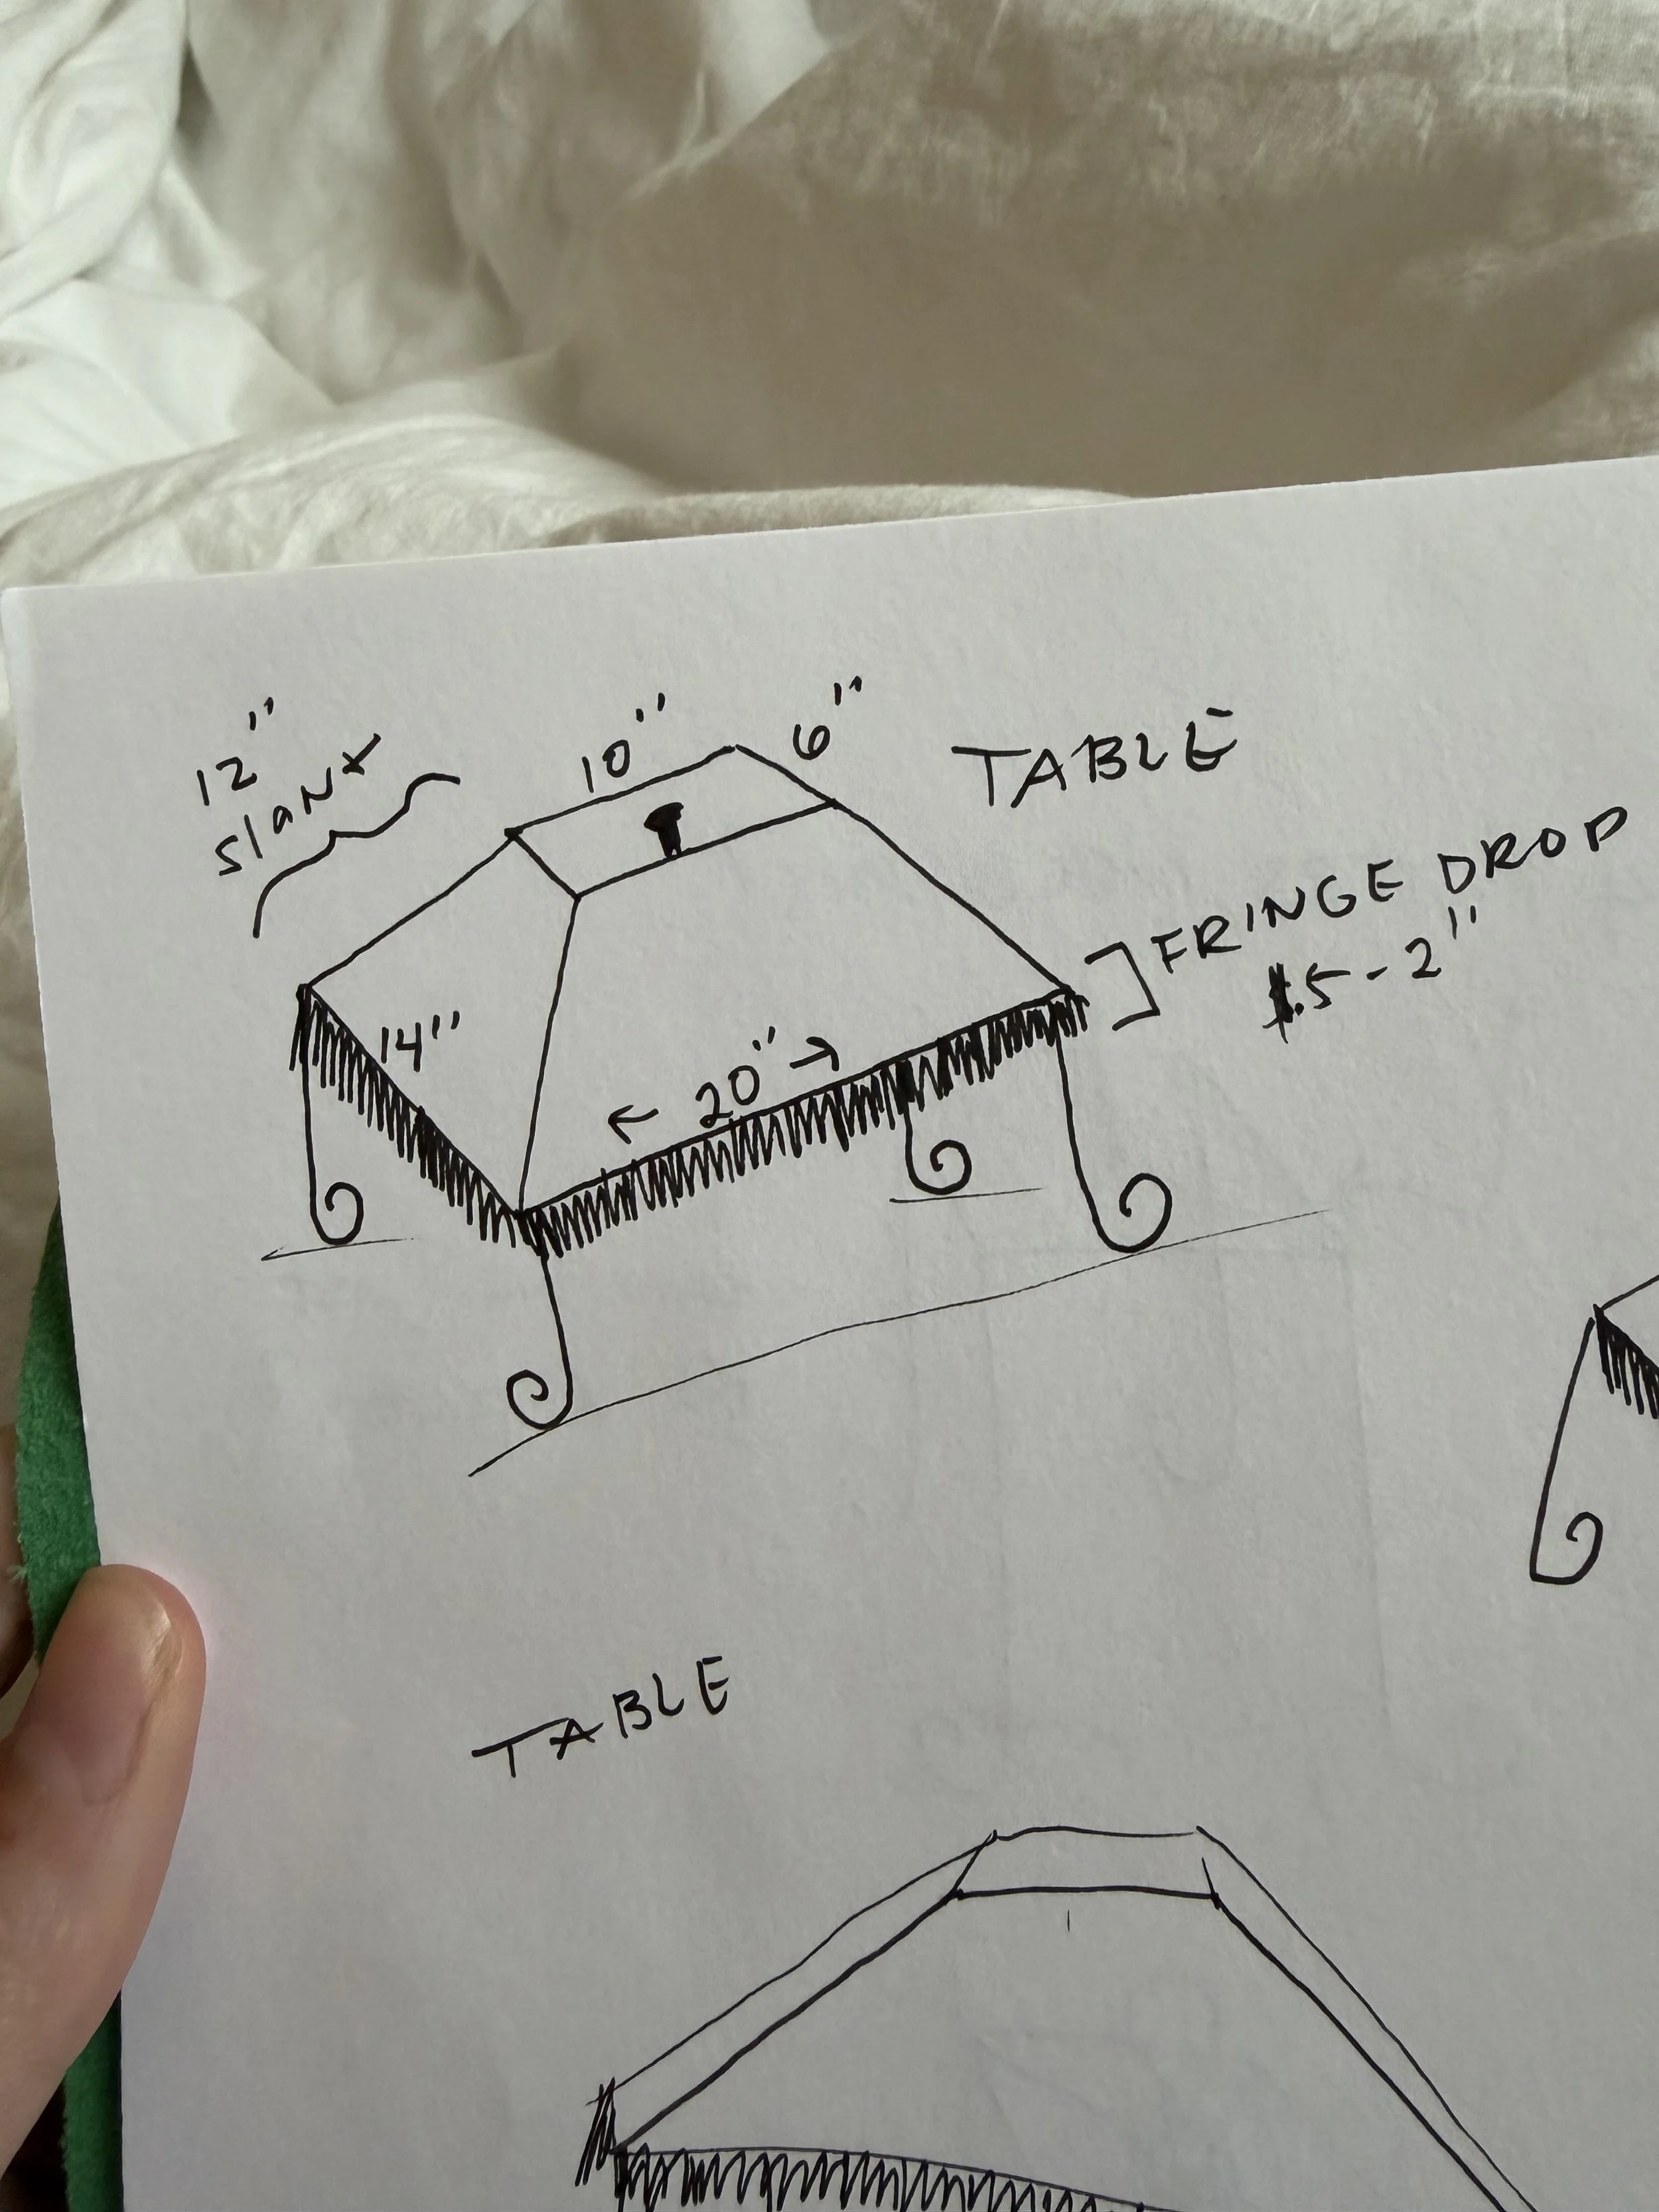 12"
slant
10"
6"
TABLE
FRINGE DROP
.5-2"
14"
← 20" →
TABLE